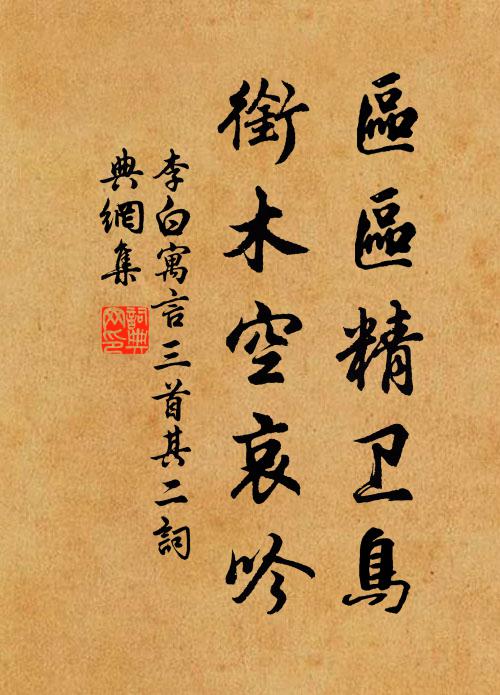 區區精卫鳥
銜木空哀吟
李白寓言三首其二詞
典網集
詞典网印